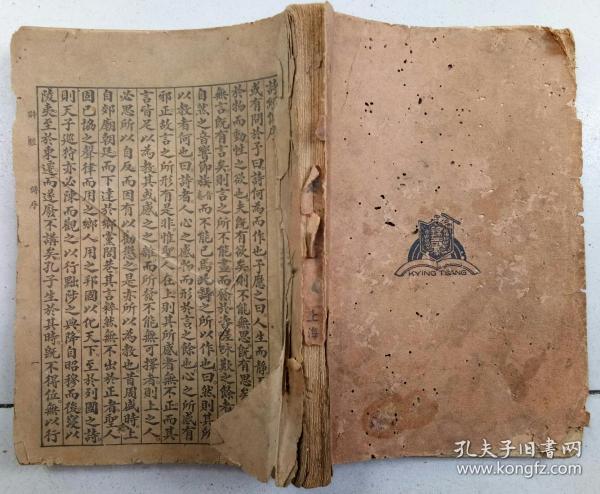 詩經傳序
或有問於予曰詩何為而作也予應之曰人生而靜
於物而動性之欲也夫既有欲矣則不能無思既有思矣
無言既有言矣則言之所不能盡而發於咨嗟咏歎之餘者
自然之音響節族而不能已焉此詩之所以作也曰然則其所
以教者何也曰詩者人心之感物而形於言之餘也心之所感有
邪正故言之所形有是非惟聖人在上則其所感者無不正而其
言皆足以為教其或感之之雜而所發不能無可擇者則上之人
必思所以自反而因有以勸懲之是亦所以為教也昔周盛時上
自郊廟朝廷而下達於鄉黨閭巷其言粹然無不出於正者聖人
固已協之聲律而用之鄉人用之邦國以化天下至於列國之詩
則天子巡狩亦必陳而觀之以行黜陟之典降自昭穆而後寖以
陵夷至於東遷而遂廢不講矣孔子生於其時既不得位無以行
詩經 傳序
上海
KYING TSANG
孔夫子旧书网
www.kongfz.com